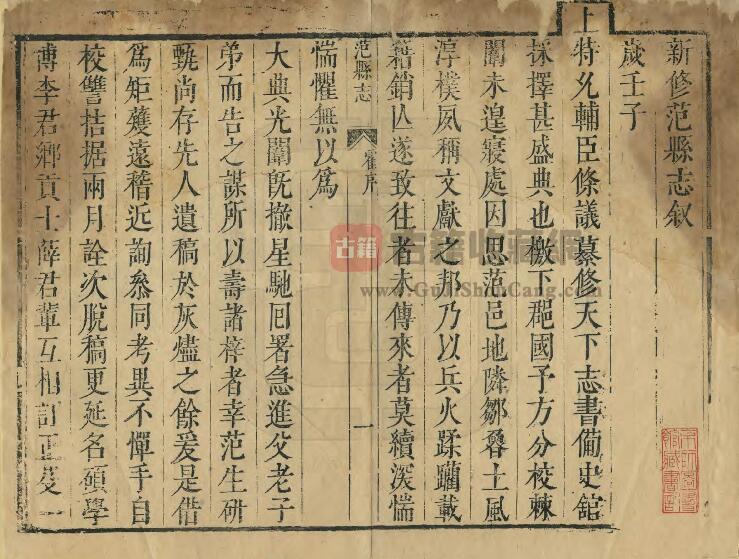 新修范縣志叙
歲壬子
上特允輔臣條議纂修天下志書備史舘
採擇甚盛典也檄下郡國予方分校棘
闈未遑寢處因思范邑地隣鄒魯土風
淳樸夙稱文獻之邦乃以兵火蹂躪載
籍銷亾遂致往者未傳來者莫續深惴
范縣志
霍序
一
惴懼無以爲
大典光闈旣撤星馳囘署急進父老子
弟而告之謀所以壽諸梓者幸范生研
甄尚存先人遺稿於灰燼之餘爰是借
爲矩矱遠稽近詢叅同考異不憚手自
校讐拮据兩月詮次脫稿更延名碩學
博李君鄉貢士薛君輩互相訂正爰一
古籍
古籍收藏網
www.GuJiShuCang.com